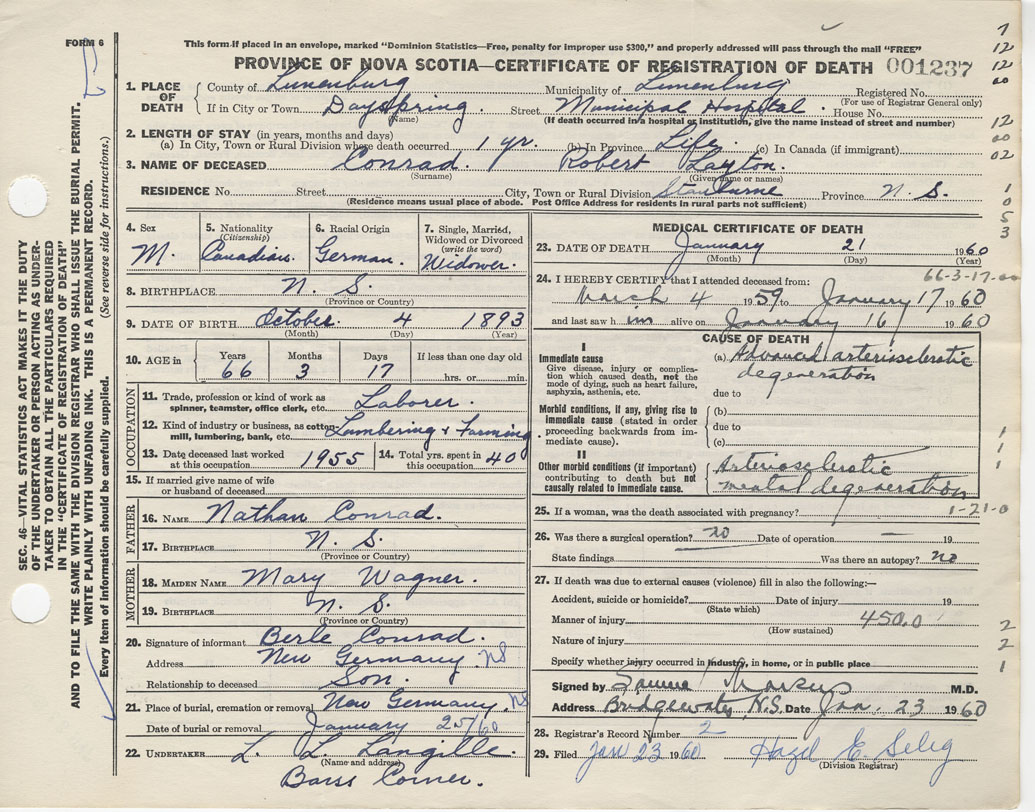 FORM 6
This form if placed in an envelope, marked "Dominion Statistics—Free, penalty for improper use $300," and properly addressed will pass through the mail "FREE"
PROVINCE OF NOVA SCOTIA—CERTIFICATE OF REGISTRATION OF DEATH 001237
1. PLACE OF DEATH County of Lunenburg Municipality of Lunenburg Registered No.
(For use of Registrar General only)
If in City or Town Dayspring (Name) Street Municipal Hospital House No.
(If death occurred in a hospital or institution, give the name instead of street and number)
2. LENGTH OF STAY (in years, months and days)
(a) In City, Town or Rural Division where death occurred 1 yr. (b) In Province Life. (c) In Canada (if immigrant)
3. NAME OF DECEASED Conrad. Robert Layton.
(Surname) (Given name or names)
RESIDENCE No. Street City, Town or Rural Division Stanburne Province N. S.
(Residence means usual place of abode. Post Office Address for residents in rural parts not sufficient)
4. Sex M.
5. Nationality (Citizenship) Canadian.
6. Racial Origin German.
7. Single, Married, Widowed or Divorced (write the word) Widower.
8. BIRTHPLACE N. S.
(Province or Country)
9. DATE OF BIRTH October. 4 1893
(Month) (Day) (Year)
10. AGE in Years 66 Months 3 Days 17 If less than one day old hrs. or min.
OCCUPATION
11. Trade, profession or kind of work as spinner, teamster, office clerk, etc. Laborer.
12. Kind of industry or business, as cotton-mill, lumbering, bank, etc. Lumbering & Farming.
13. Date deceased last worked at this occupation 1955 14. Total yrs. spent in this occupation 40
15. If married give name of wife or husband of deceased
FATHER
16. NAME Nathan Conrad.
17. BIRTHPLACE N. S.
(Province or Country)
MOTHER
18. MAIDEN NAME Mary Wagner.
19. BIRTHPLACE N. S.
(Province or Country)
20. Signature of informant Berle Conrad.
Address New Germany. NS
Relationship to deceased Son.
21. Place of burial, cremation or removal New Germany. NS
Date of burial or removal January 25/60
22. UNDERTAKER L. L. Langille.
(Name and address)
Barss Corner.
MEDICAL CERTIFICATE OF DEATH
23. DATE OF DEATH January 21 1960
(Month) (Day) (Year)
66-3-17
24. I HEREBY CERTIFY that I attended deceased from:
March 4 1959 to January 17 1960
and last saw h im alive on January 16 1960
CAUSE OF DEATH
I
Immediate cause
Give disease, injury or complication which caused death, not the mode of dying, such as heart failure, asphyxia, asthenia, etc.
(a) Advanced arteriosclerotic degeneration
due to
Morbid conditions, if any, giving rise to immediate cause (stated in order proceeding backwards from immediate cause).
(b)
due to
(c)
II
Other morbid conditions (if important) contributing to death but not causally related to immediate cause.
Arteriosclerotic mental degeneration
25. If a woman, was the death associated with pregnancy? 1-21-0
26. Was there a surgical operation? no Date of operation — 19
State findings Was there an autopsy? no
27. If death was due to external causes (violence) fill in also the following:—
Accident, suicide or homicide? Date of injury 19
(State which)
Manner of injury 450.0
(How sustained)
Nature of injury
Specify whether injury occurred in industry, in home, or in public place
Signed by Samuel Marcus M.D.
Address Bridgewater, N.S. Date Jan. 23 1960
28. Registrar's Record Number 2
29. Filed Jan 23 1960 Hazel E. Selig
(Division Registrar)
SEC. 46—VITAL STATISTICS ACT MAKES IT THE DUTY
OF THE UNDERTAKER OR PERSON ACTING AS UNDER-
TAKER TO OBTAIN ALL THE PARTICULARS REQUIRED
IN THE "CERTIFICATE OF REGISTRATION OF DEATH"
AND TO FILE THE SAME WITH THE DIVISION REGISTRAR WHO SHALL ISSUE THE BURIAL PERMIT.
WRITE PLAINLY WITH UNFADING INK. THIS IS A PERMANENT RECORD.
Every item of information should be carefully supplied. (See reverse side for instructions.)
7
12
12
60
12
00
02
1
0
5
3
1
1
1
2
2
1